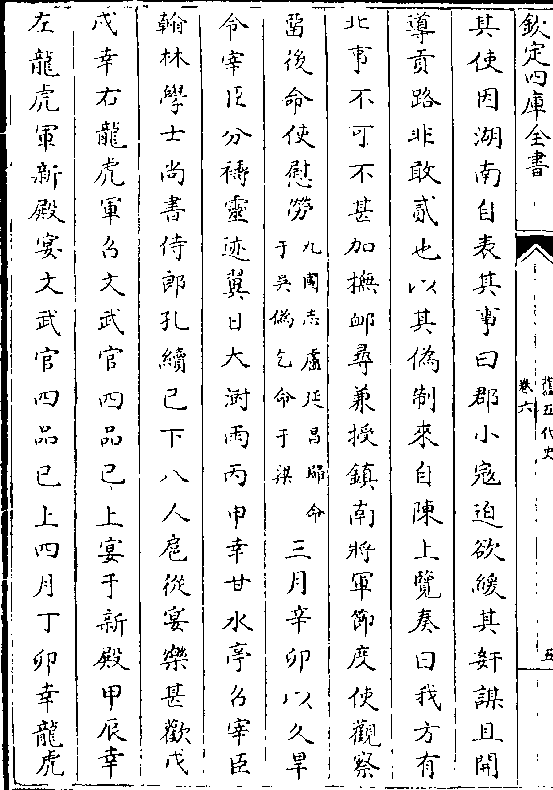 欽定四庫全書
舊五代史
卷六
五
其使因湖南自表其事曰郡小寇迫欲緩其奸謀且開
導貢路非敢貳也以其偽制來自陳上覽奏曰我方有
北事不可不甚加撫䘏尋兼授鎮南將軍節度使觀察
留後命使慰勞九國志盧延昌歸命于吳偽乞命于梁三月辛卯以久旱
令宰臣分禱靈迹翼日大澍雨丙申幸甘水亭召宰臣
翰林學士尚書侍郎孔續已下八人扈從宴樂甚歡戊
戌幸右龍虎軍召文武官四品已上宴于新殿甲辰幸
左龍虎軍新殿宴文武官四品已上四月丁卯幸龍虎